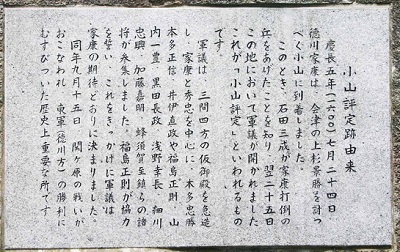 小山評定跡由来
慶長五年(一六〇〇)七月二十四日
徳川家康は、会津の上杉景勝を討つ
べく小山に到着しました。
このとき、石田三成が家康打倒の
兵をあげたことを知り、翌二十五日
この地において軍議が開かれました。
これが「小山評定」といわれるもの
です。
軍議は、三間四方の仮御殿を急造
し、家康と秀忠を中心に、本多忠勝
本多正信、井伊直政や福島正則、山
内一豊、黒田長政、浅野幸長、細川
忠興、加藤嘉明、蜂須賀至鎮らの諸
将が参集しました。福島正則が協力
を誓い、これをきっかけに軍議は
家康の期待どおりに決まりました。
同年九月十五日、関ヶ原の戦いが
おこなわれ、東軍(徳川方)の勝利に
むすびついた歴史上重要な所です